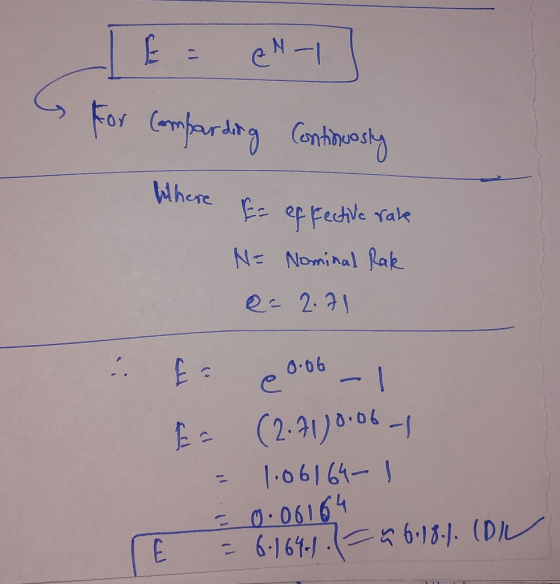 E = e^N - 1
For Compounding Continuosly
Where E = effective rate
N = Nominal Rate
e = 2.71
∴ E = e^0.06 - 1
E = (2.71)^0.06 - 1
= 1.06164 - 1
= 0.06164
E = 6.164% = ≈ 6.18% (D)